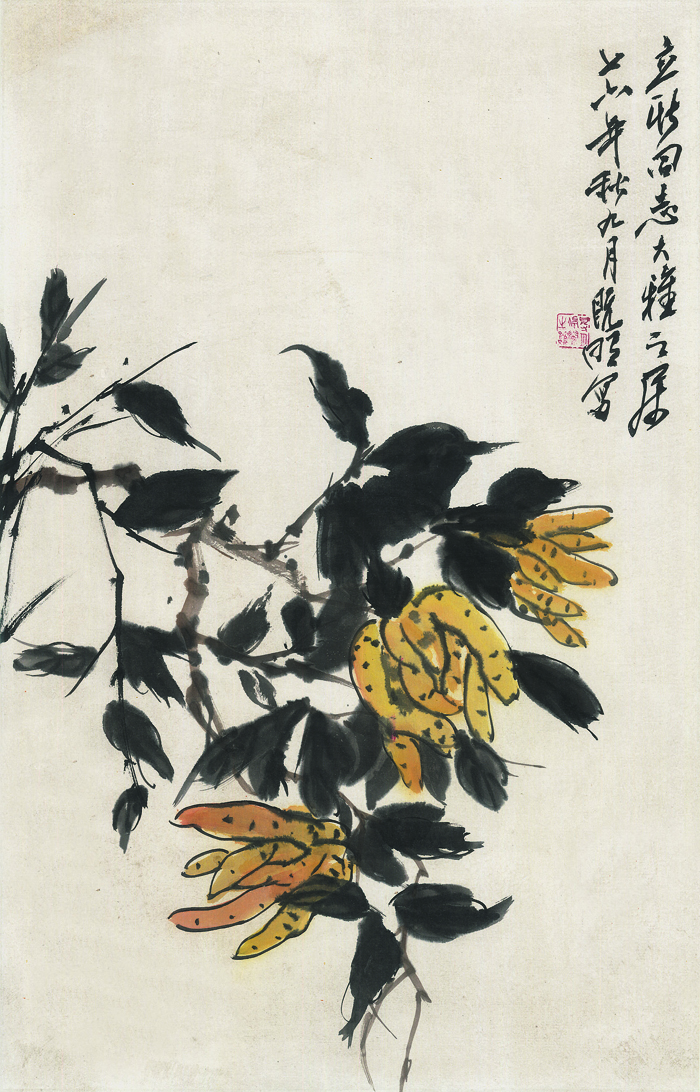 立同志大雅之属
七六年秋九月既明写